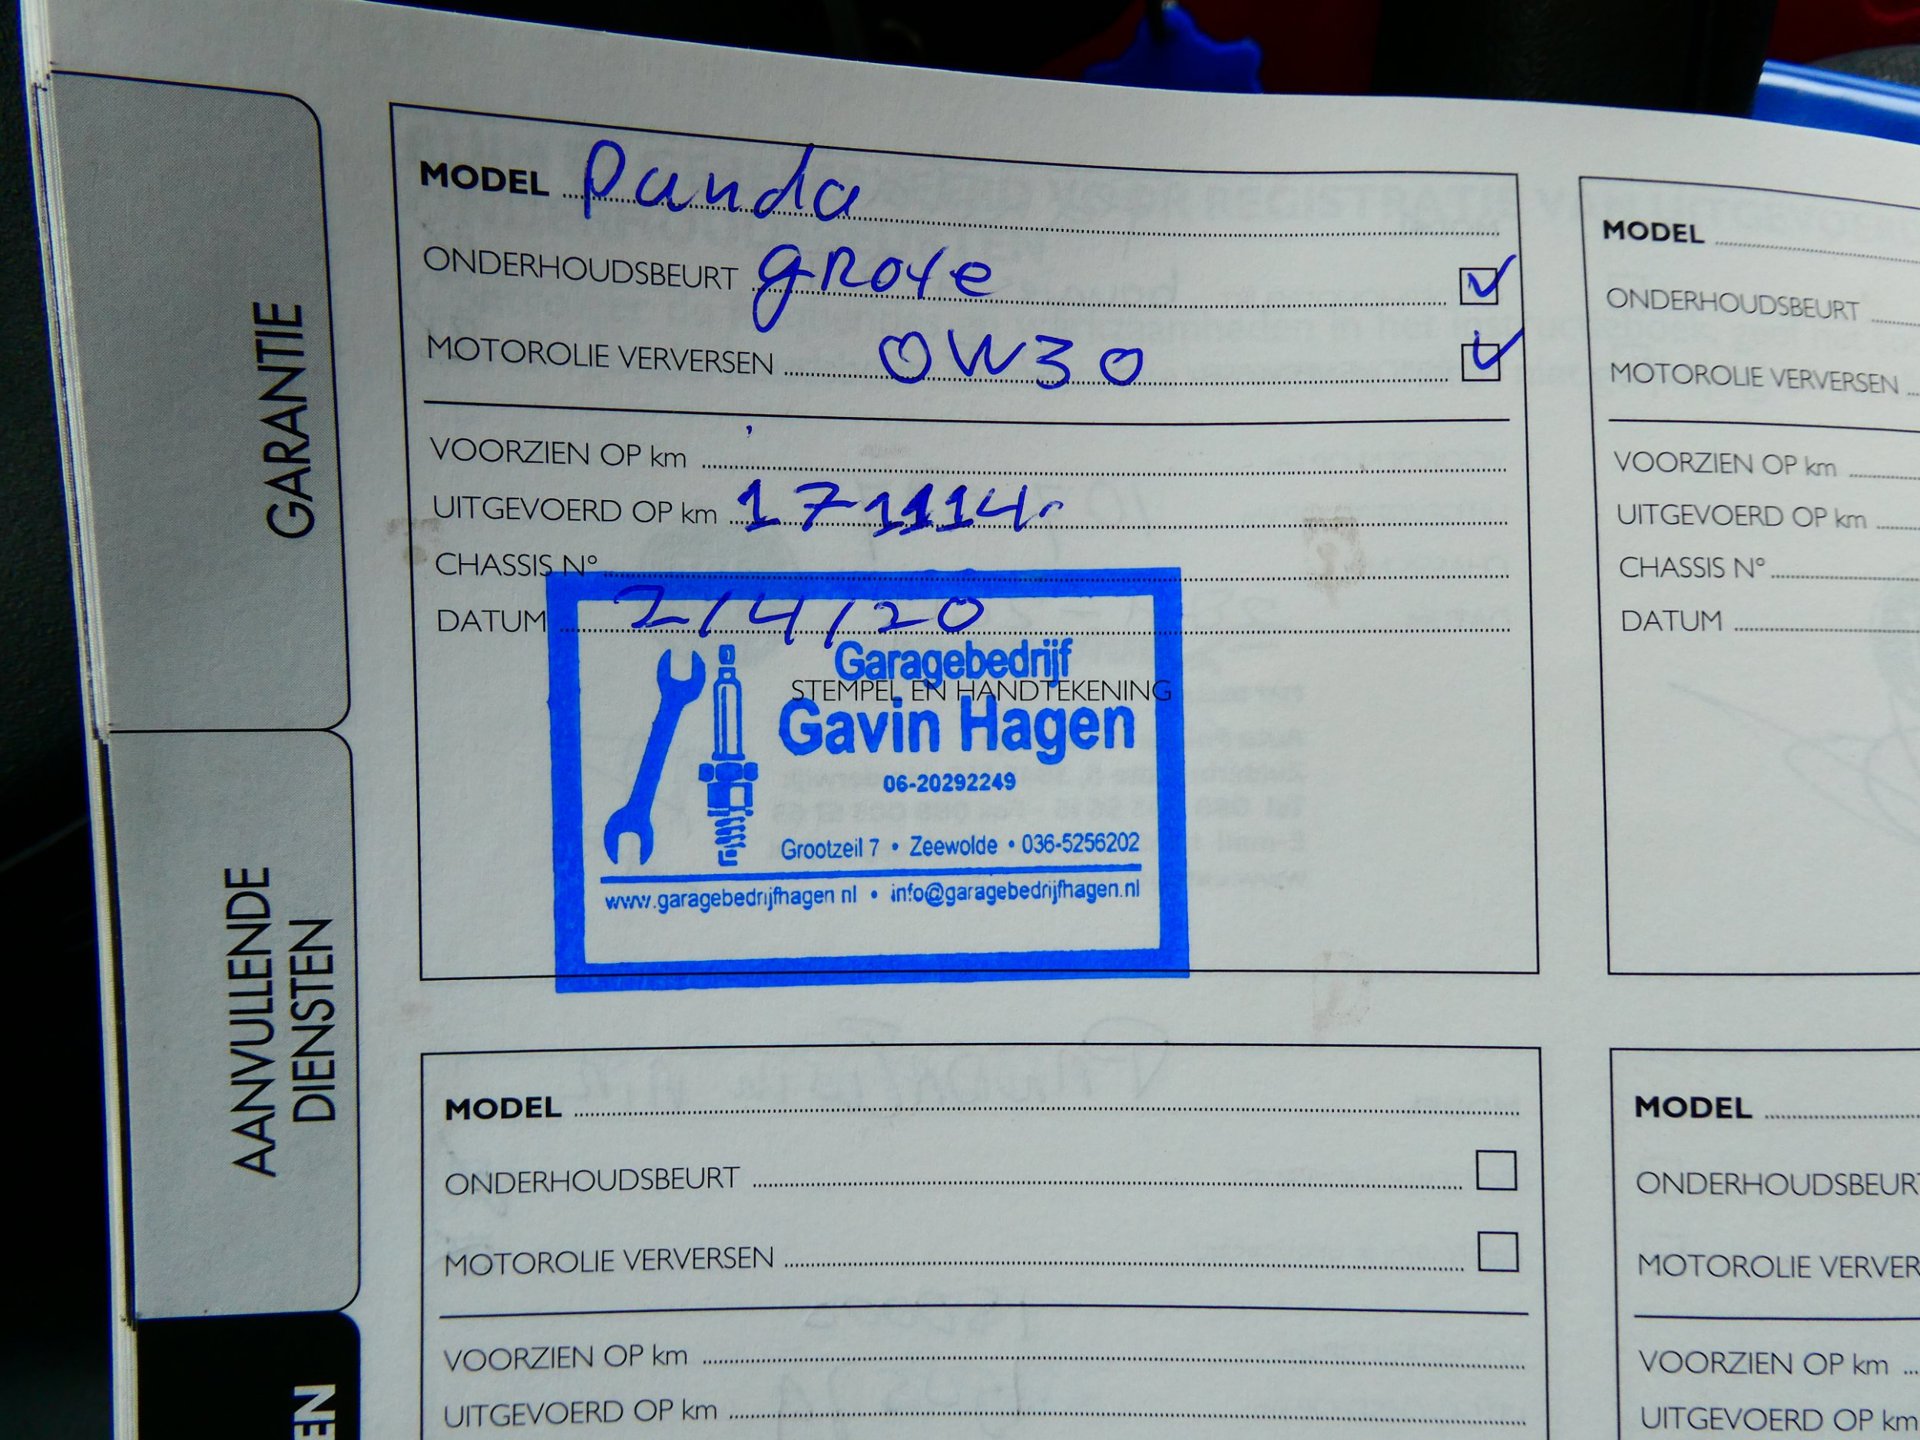 GARANTIE
AANVULLENDE
DIENSTEN
EN
MODEL Panda
ONDERHOUDSBEURT grote
MOTOROLIE VERVERSEN 0W30
VOORZIEN OP km
UITGEVOERD OP km 171114
CHASSIS N°
DATUM 2/4/20
STEMPEL EN HANDTEKENING
Garagebedrijf
Gavin Hagen
06-20292249
Grootzeil 7 • Zeewolde • 036-5256202
www.garagebedrijfhagen.nl • info@garagebedrijfhagen.nl
MODEL
ONDERHOUDSBEURT
MOTOROLIE VERVERSEN
VOORZIEN OP km
UITGEVOERD OP km
CHASSIS N°
DATUM
MODEL
ONDERHOUDSBEURT
MOTOROLIE VERVERSEN
VOORZIEN OP km
UITGEVOERD OP km
MODEL
ONDERHOUDSBEURT
MOTOROLIE VERVER
VOORZIEN OP km
UITGEVOERD OP km